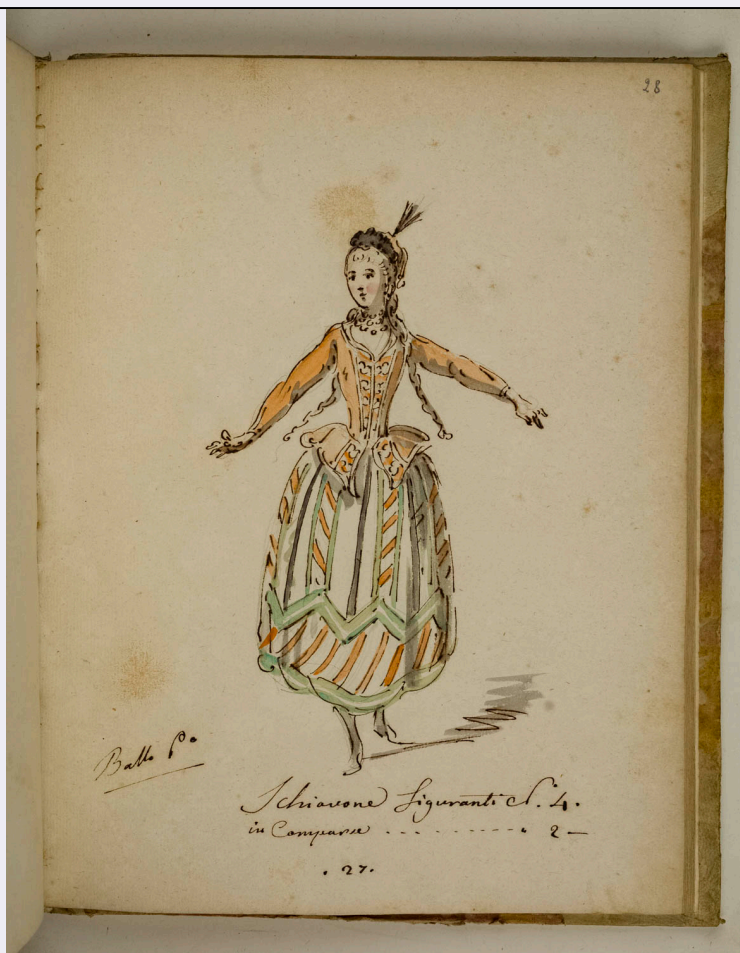 28
Ballo Po
Schiavone figuranti N. 4.
in Comparse - - - - - - - - 2 —
. 27.